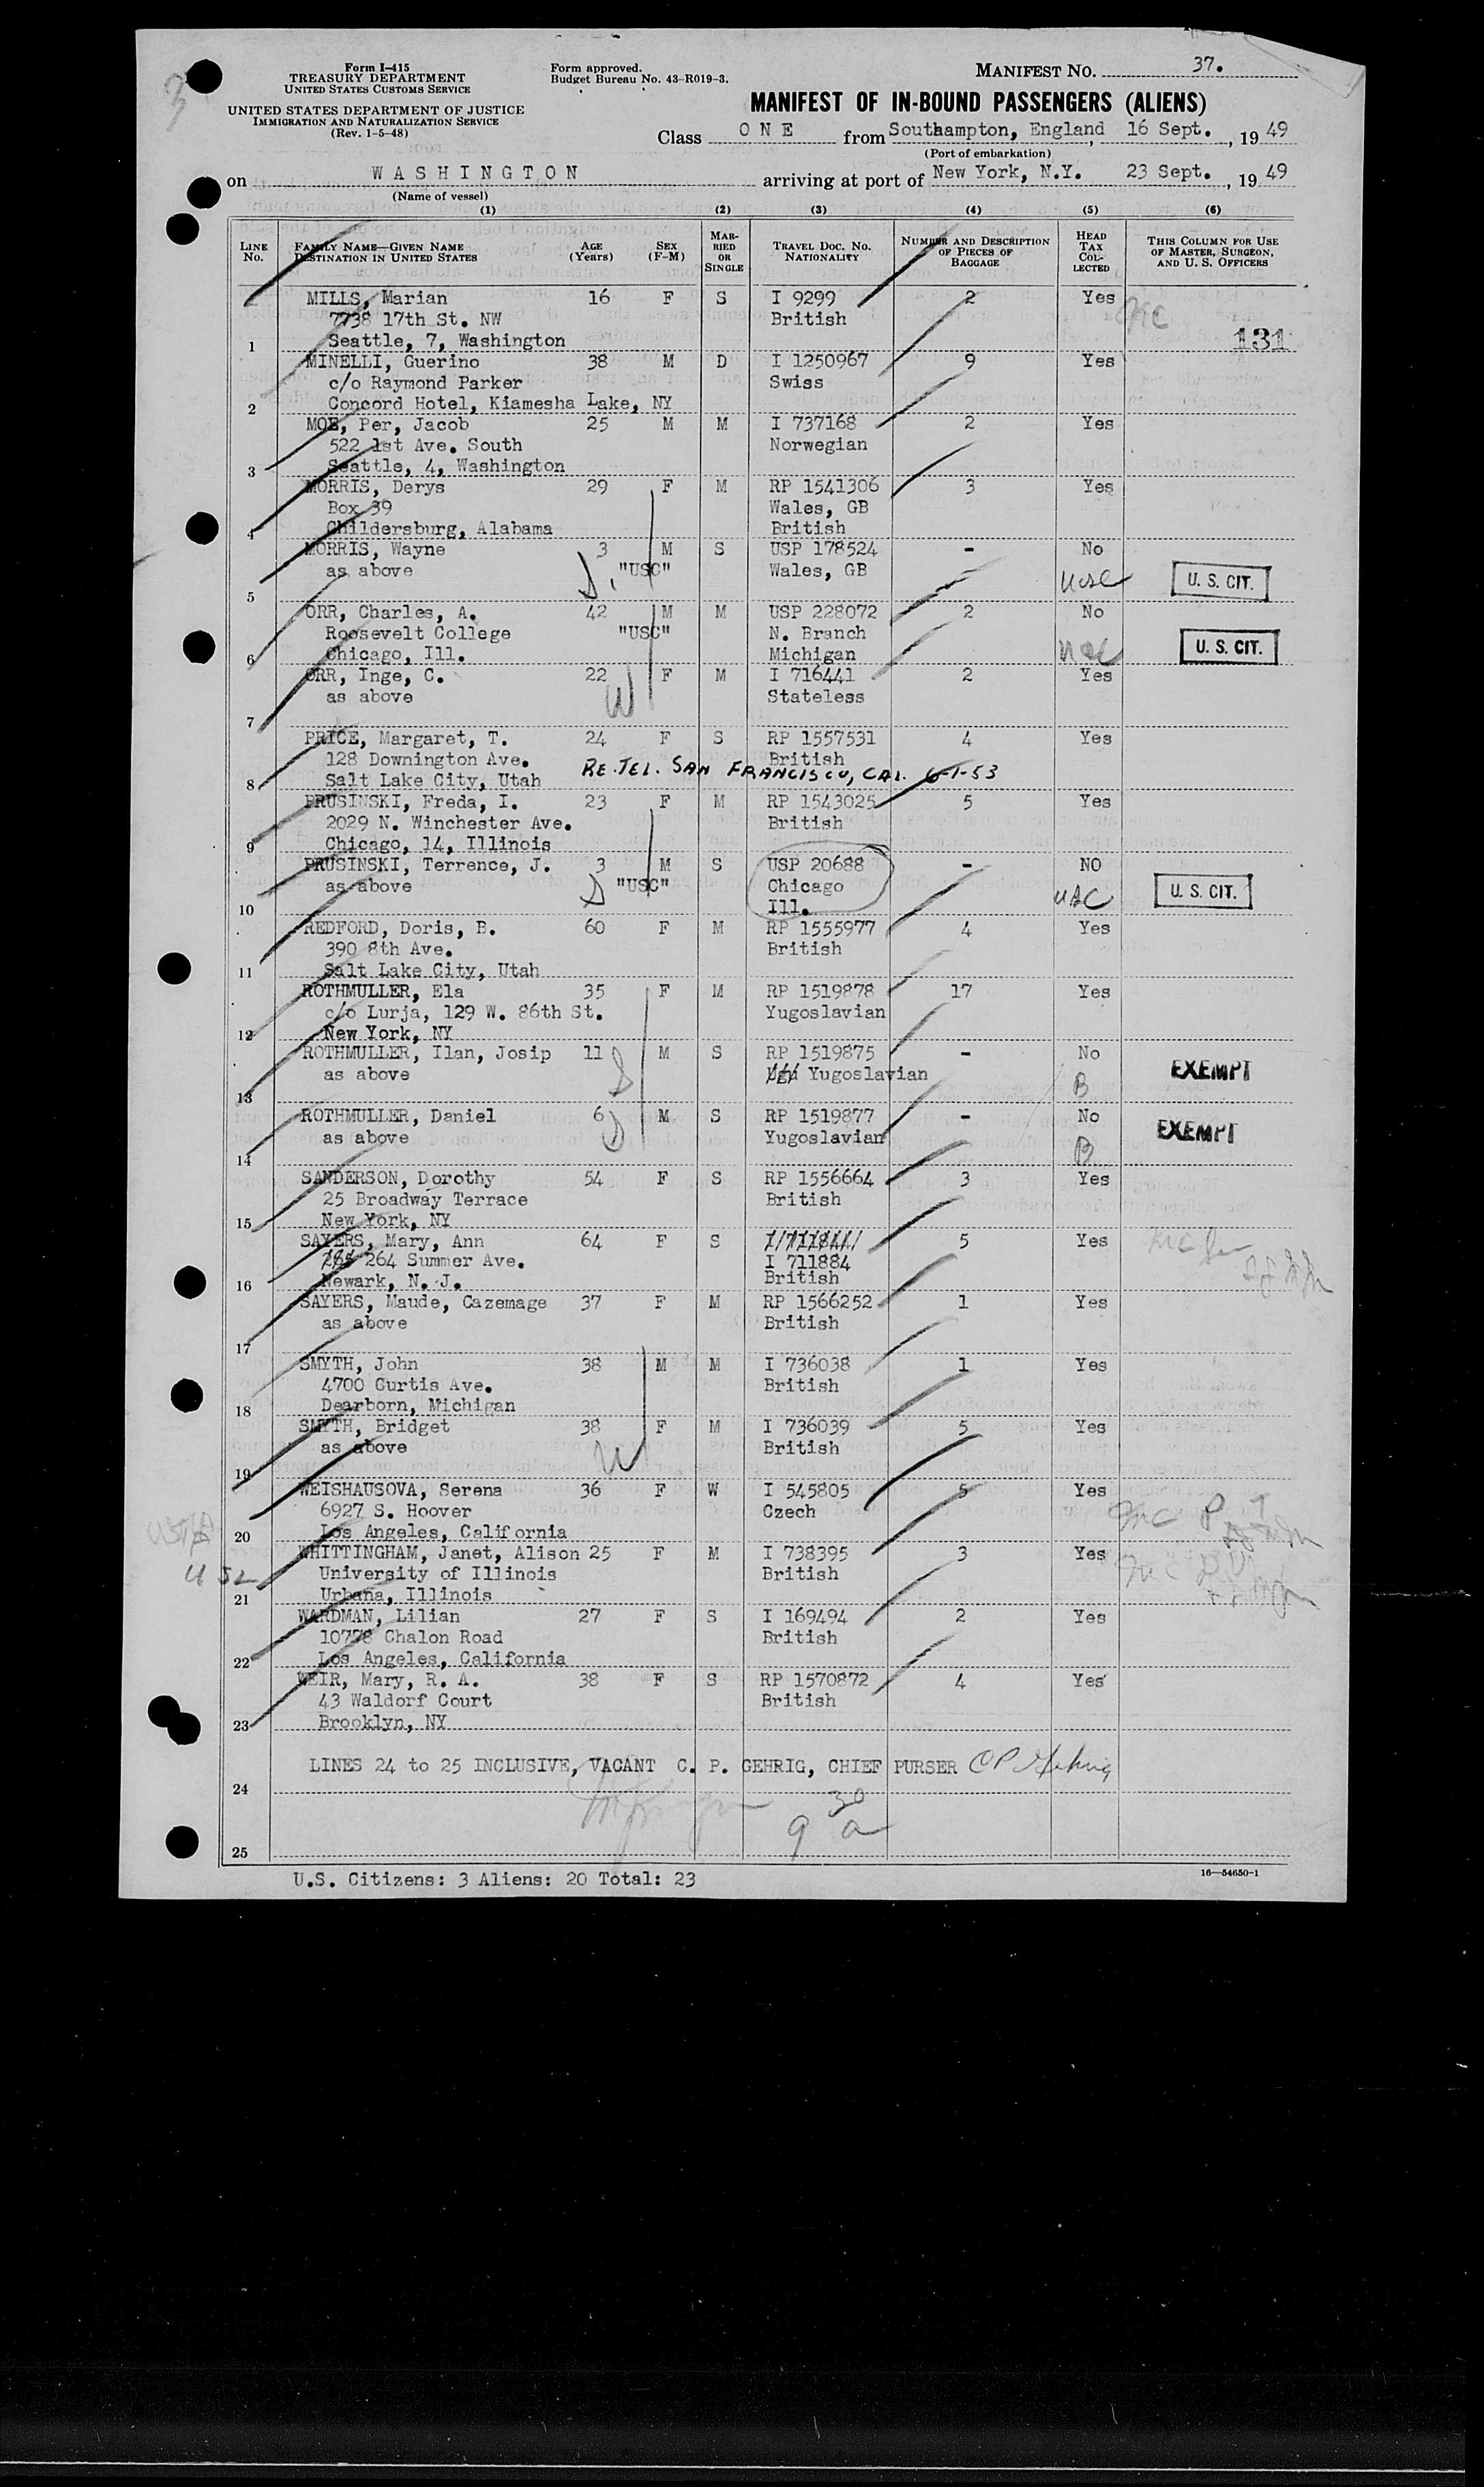 Form I-415
TREASURY DEPARTMENT
UNITED STATES CUSTOMS SERVICE
UNITED STATES DEPARTMENT OF JUSTICE
IMMIGRATION AND NATURALIZATION SERVICE
(Rev. 1-5-48)
Form approved.
Budget Bureau No. 43-R019-3.
MANIFEST NO. 37.
MANIFEST OF IN-BOUND PASSENGERS (ALIENS)
Class ONE from Southampton, England, 16 Sept., 1949
(Port of embarkation)
on WASHINGTON arriving at port of New York, N.Y. 23 Sept., 1949
(Name of vessel)
(1) (2) (3) (4) (5) (6)
LINE NO. FAMILY NAME—GIVEN NAME DESTINATION IN UNITED STATES AGE (Years) SEX (F-M) MARRIED OR SINGLE TRAVEL DOC. NO. NATIONALITY NUMBER AND DESCRIPTION OF PIECES OF BAGGAGE HEAD TAX COLLECTED THIS COLUMN FOR USE OF MASTER, SURGEON, AND U. S. OFFICERS
MILLS, Marian 16 F S I 9299 2 Yes
7738 17th St. NW British
1 Seattle, 7, Washington 131
MINELLI, Guerino 38 M D I 1250967 9 Yes
c/o Raymond Parker Swiss
2 Concord Hotel, Kiamesha Lake, NY
MOE, Per, Jacob 25 M M I 737168 2 Yes
522 1st Ave. South Norwegian
3 Seattle, 4, Washington
MORRIS, Derys 29 F M RP 1541306 3 Yes
Box 39 Wales, GB
4 Childersburg, Alabama British
MORRIS, Wayne 3 M S USP 178524 - No
as above "USC" Wales, GB U. S. CIT.
5
ORR, Charles, A. 42 M M USP 228072 2 No
Roosevelt College "USC" N. Branch
6 Chicago, Ill. Michigan U. S. CIT.
ORR, Inge, C. 22 F M I 716441 2 Yes
as above W Stateless
7
PRICE, Margaret, T. 24 F S RP 1557531 4 Yes
128 Downington Ave. British
8 Salt Lake City, Utah RE. TEL. SAN FRANCISCO, CAL. 6-1-53
PRUSINSKI, Freda, I. 23 F M RP 1543025 5 Yes
2029 N. Winchester Ave. British
9 Chicago, 14, Illinois
PRUSINSKI, Terrence, J. 3 M S USP 20688 - NO
as above "USC" Chicago USC U. S. CIT.
10 Ill.
REDFORD, Doris, B. 60 F M RP 1555977 4 Yes
390 8th Ave. British
11 Salt Lake City, Utah
ROTHMULLER, Ela 35 F M RP 1519878 17 Yes
c/o Lurja, 129 W. 86th St. Yugoslavian
12 New York, NY
ROTHMULLER, Ilan, Josip 11 M S RP 1519875 - No EXEMPT
as above Yugoslavian B
13
ROTHMULLER, Daniel 6 M S RP 1519877 - No EXEMPT
as above Yugoslavian B
14
SANDERSON, Dorothy 54 F S RP 1556664 3 Yes
25 Broadway Terrace British
15 New York, NY
SAYERS, Mary, Ann 64 F S 5 Yes
264 Summer Ave. I 711884
16 Newark, N. J. British
SAYERS, Maude, Cazemage 37 F M RP 1566252 1 Yes
as above British
17
SMYTH, John 38 M M I 736038 1 Yes
4700 Curtis Ave. British
18 Dearborn, Michigan
SMYTH, Bridget 38 F M I 736039 5 Yes
as above W British
19
WEISHAUSOVA, Serena 36 F W I 545805 5 Yes
6927 S. Hoover Czech
20 Los Angeles, California
WHITTINGHAM, Janet, Alison 25 F M I 738395 3 Yes
University of Illinois British
21 Urbana, Illinois
WARDMAN, Lilian 27 F S I 169494 2 Yes
10778 Chalon Road British
22 Los Angeles, California
WEIR, Mary, R. A. 38 F S RP 1570872 4 Yes
43 Waldorf Court British
23 Brooklyn, NY
LINES 24 to 25 INCLUSIVE, VACANT C. P. GEHRIG, CHIEF PURSER CP Gehrig
24
9 30 a
25
U.S. Citizens: 3 Aliens: 20 Total: 23
16—54650-1